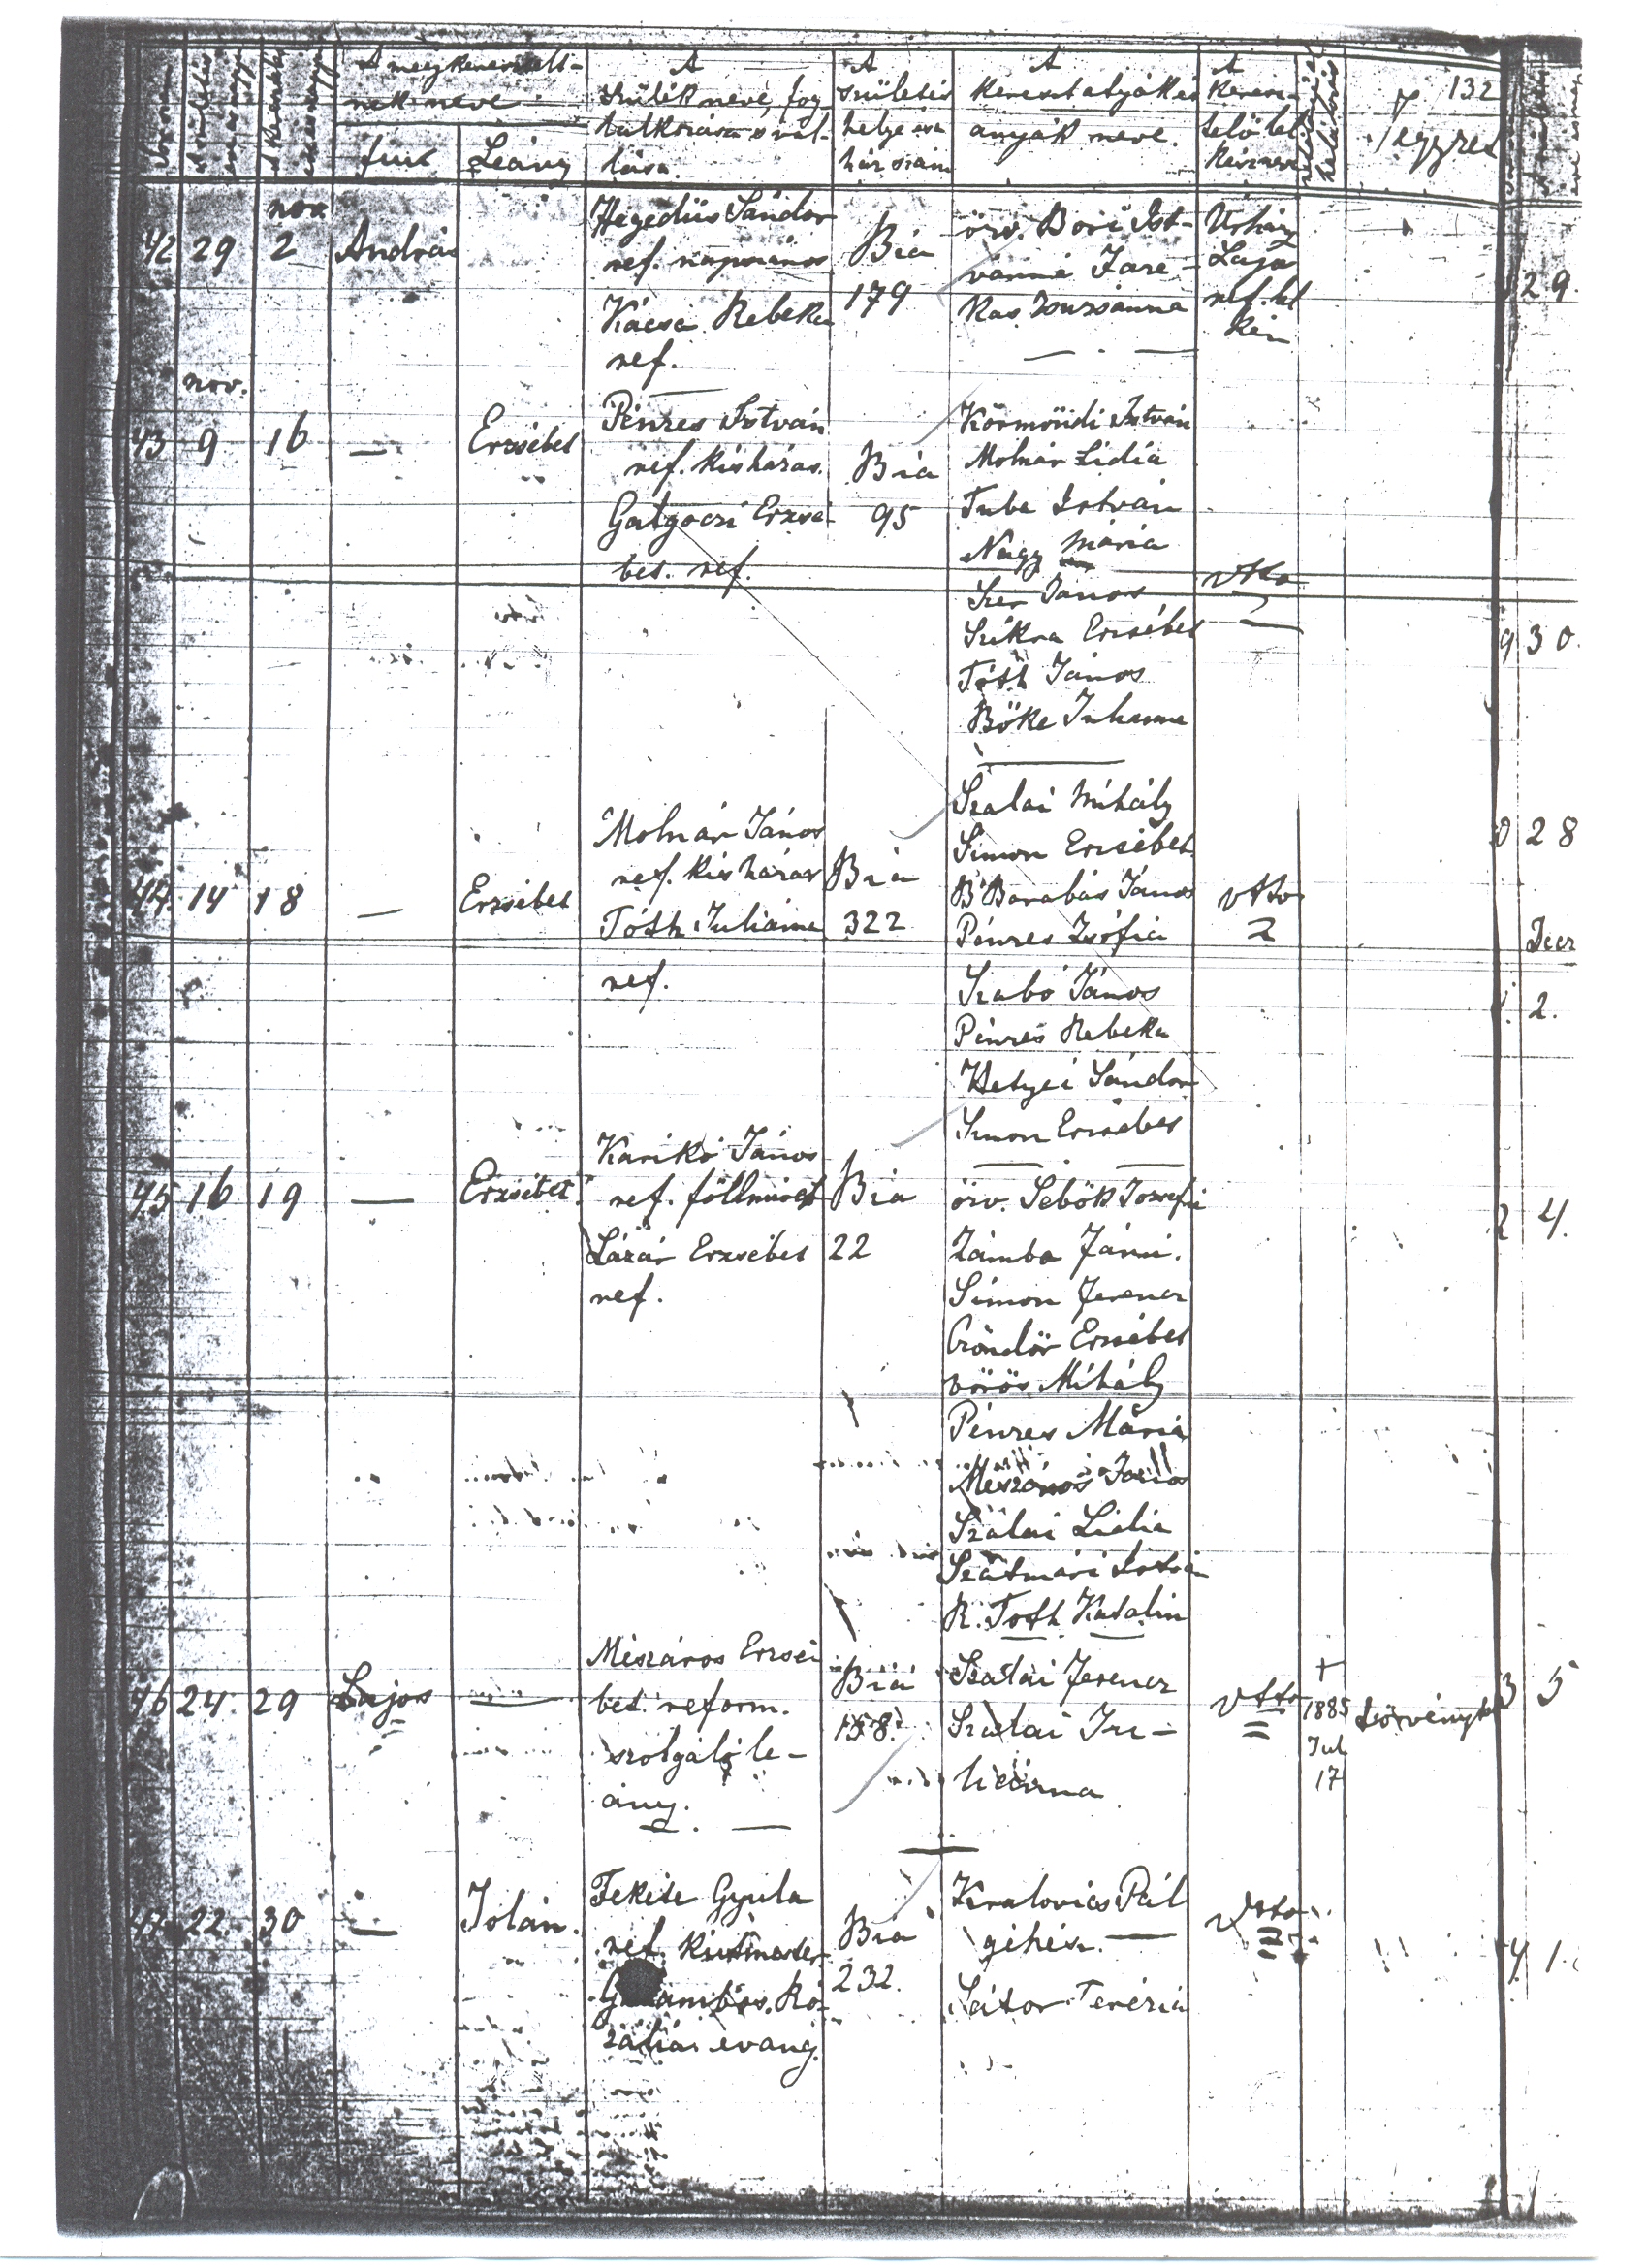 132
A megkeresztelt-
nek neve
fiu
Leány
A
szülék neve, fog-
lalkozása s val-
lása.
A
születés
helye és a
ház szám
A
keresztatyák és
anyák neve.
A
keresz-
telő lel-
késznevé
Jegyzet
nov
42 29 2 András
Hegedüs Sándor
ref. napszámos
Kácsa Rebeka
ref.
Bia
179
özv. Bori Ist-
vánné Fare-
kas Zsuzsánna
Lajo
ref. lel
kész
29.
nov.
43 9 16 — Erzsébet
Pénzes István
ref. kisházas.
Galgoczi Erzsé-
bet. ref.
Bia
95
Körmöndi István
Molnár Lidia
Tuba István
Nagy Mária
Szer János
Szikra Erzsébet
Tóth János
Bőke Juhanna
vtto
30.
44. 14 18 — Erzsébet
Molnár János
ref. kis házas
Tóth Juliánna
ref.
Bia
322
Szalai Mihály
Simon Erzsébet
B Barabás János
Pénzes Zsófia
Szabó János
Pénzes Rebeka
Hetyei Sándor
Simon Erzsébet
vtto
28
Decz
2.
45 16 19 — Erzsébet
Karikó János
ref. föllmives
Lázár Erzsébet
ref.
Bia
22
özv. Sebök Jozsefné
Zámbo Jánni.
Simon Ferencz
Göndör Erzsébet
vörös Mihály
Pénzes Mária
Mészáros János
Szalai Lidia
Szatmári István
R. Toth Katalin
4.
46 24. 29 Lajos —
Mészáros Erzsé
bet reform.
szolgáló le-
ány.
Bia
158.
Szalai Ferencz
Szalai Ju-
liánna
vtto
+
1885
Jul
17
törvényt
5
47 22. 30 — Jolán.
Fekete Gyula
ref. kutmester
Galambos Ro-
zália evang.
Bia
232.
Kralovics Pál
géhész. —
Sátor Terézia
vtto